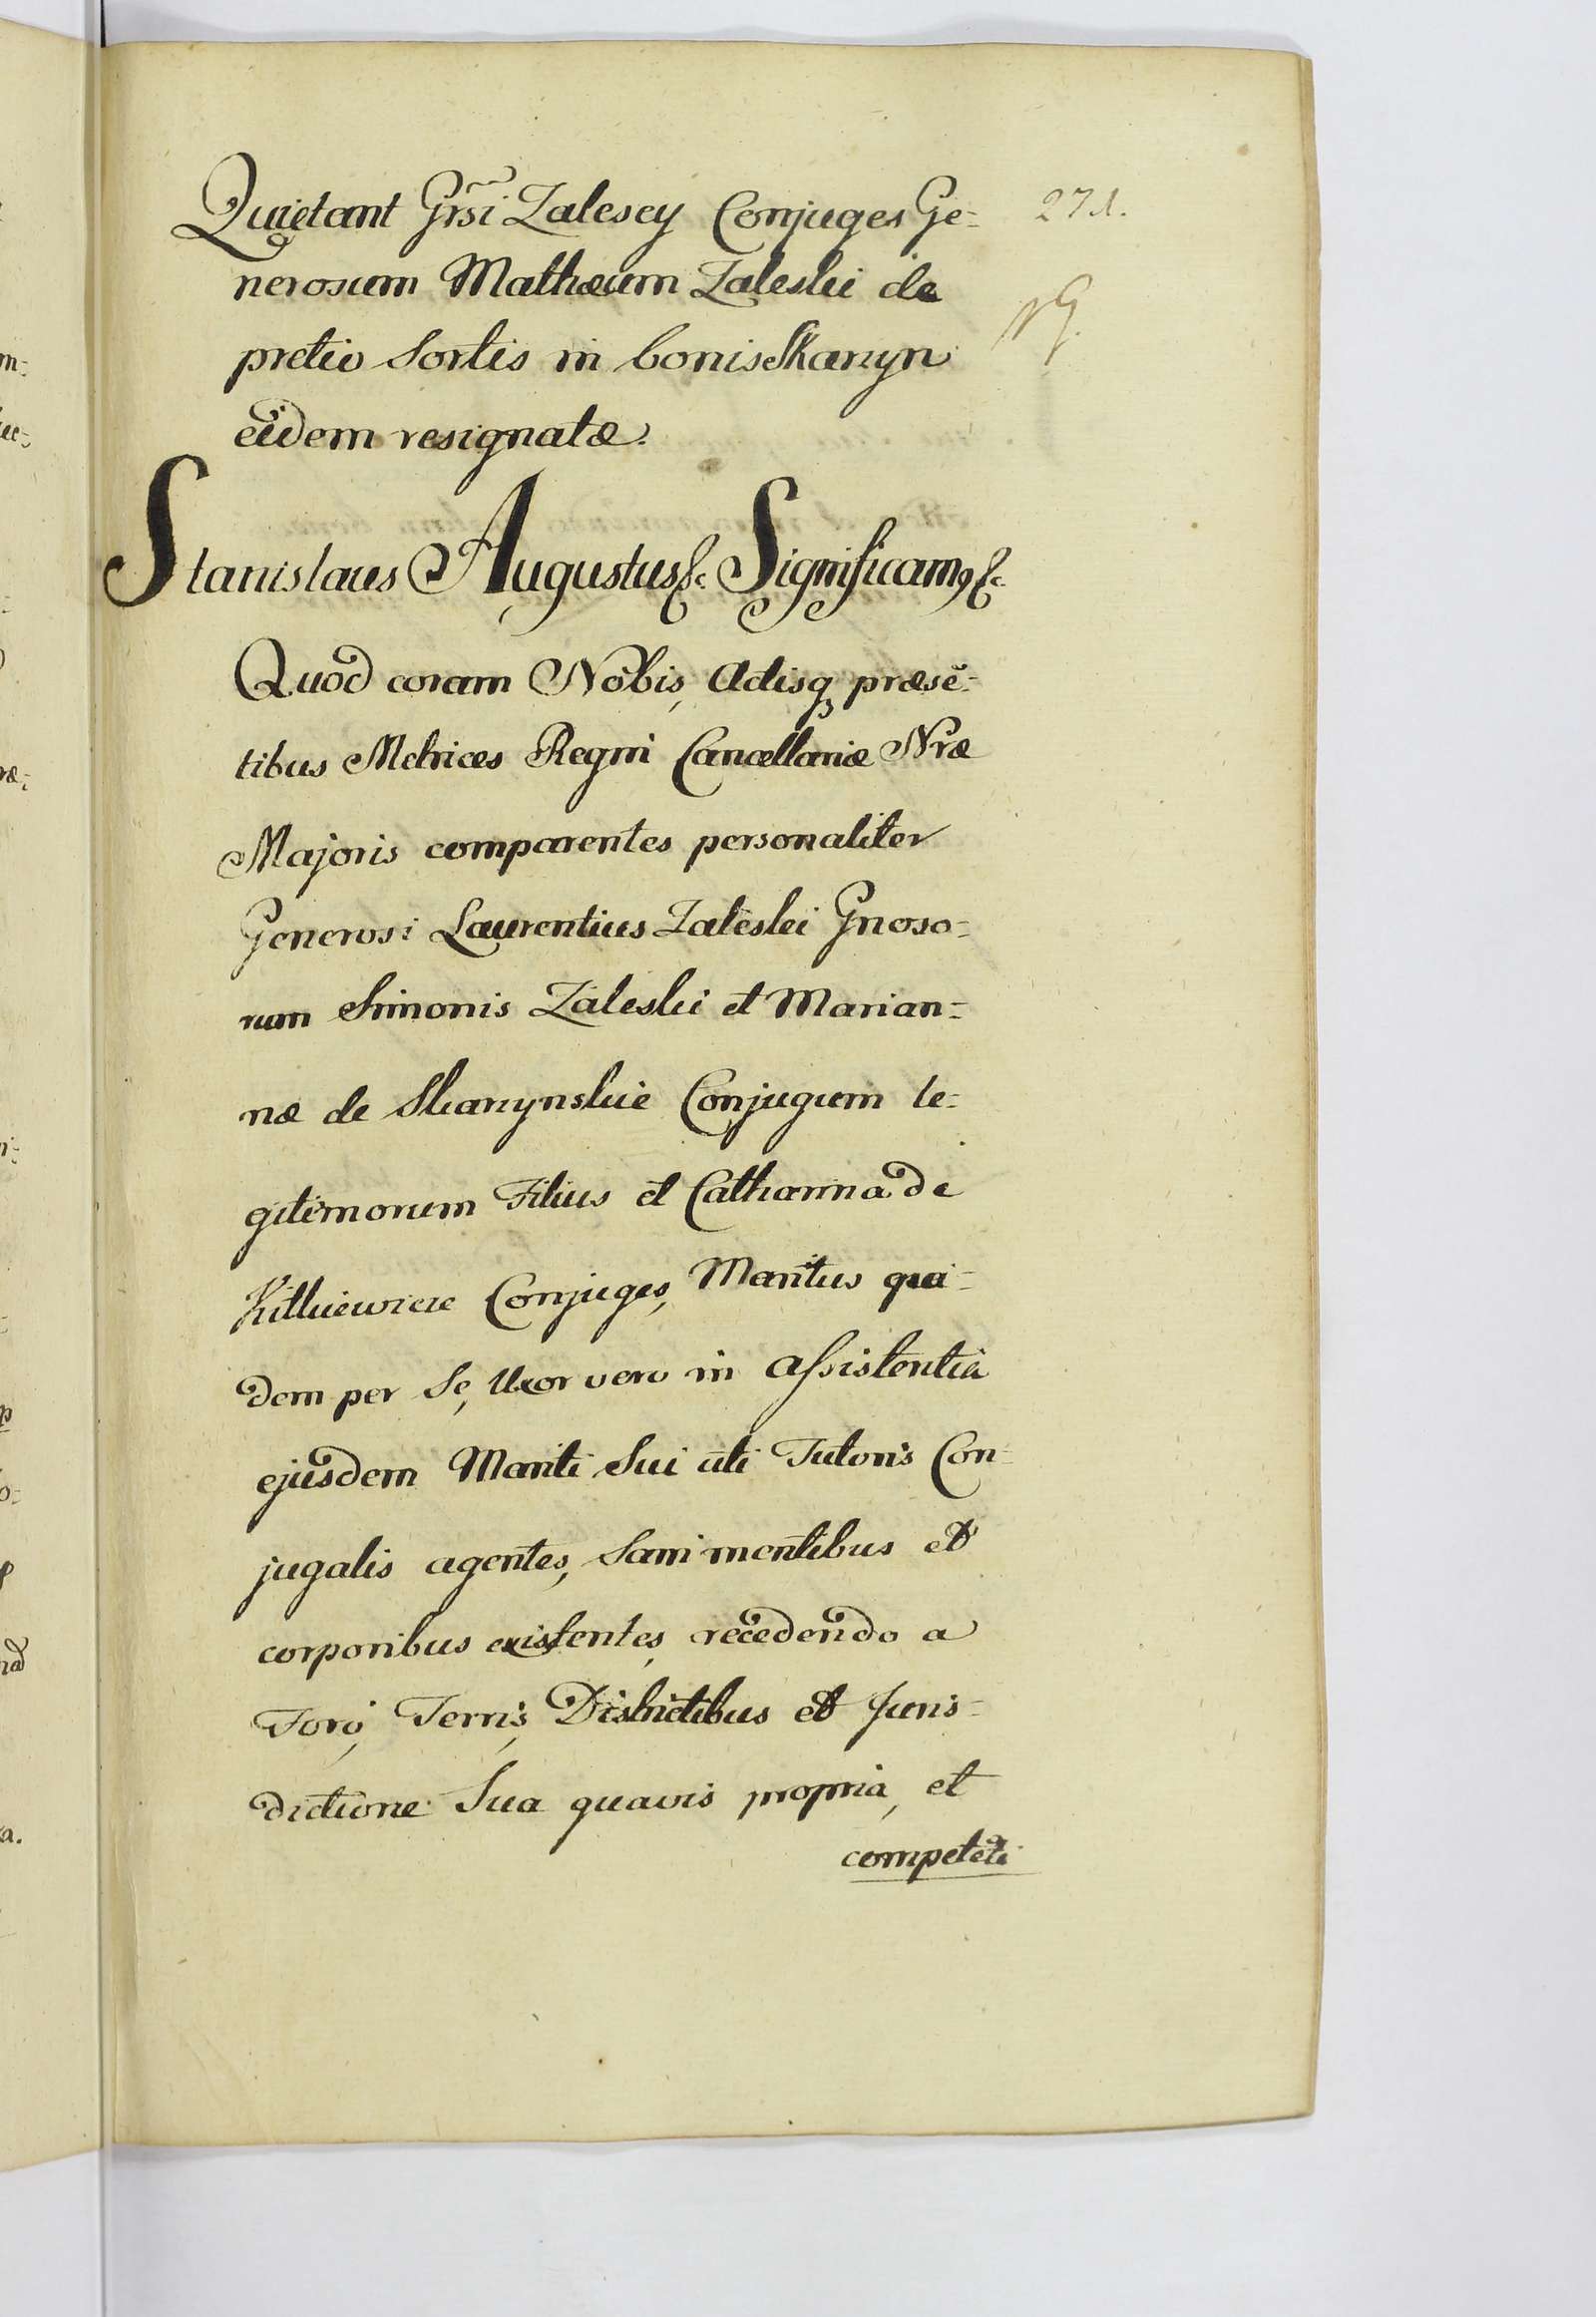 Quietant Grsi Zalescy Conjuges Ge=
271.
nerosum Mathæum Zaleski de
pretio Sortis in bonis Skarzyn
eidem resignatæ.
Stanislaus Augustus &c. Significamq &c.
Quod coram Nobis, Actisq præsē=
tibus Metrices Regni Cancellariæ Nræ
Majoris comparentes personaliter
Generosi Laurentius Zaleski Gnoso=
rum Simonis Zaleski et Marian=
næ de Skarzynskie Conjugum le=
gitimorum Filius et Catharina de
Conjuges, Maritus qui=
dem per Se, Uxor vero in Assistentia
ejusdem Mariti Sui uti Tutoris Con=
jugalis agentes, Sani mentibus et
corporibus existentes, recedendo a
Foro, Terris, Districtibus et Juris=
dictione Sua quavis propria, et
competēti